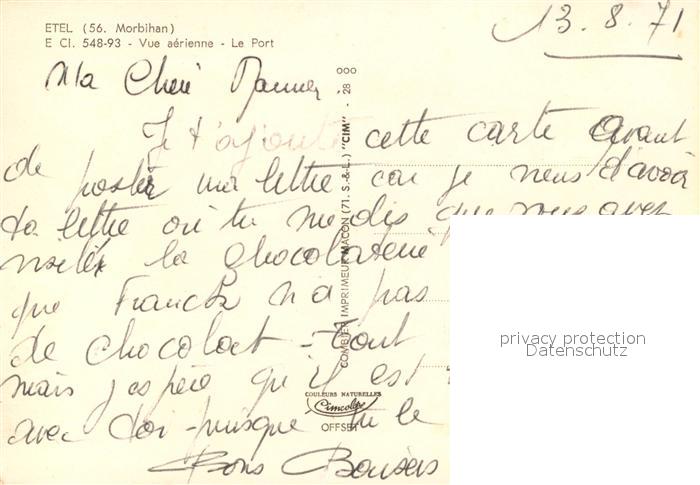 ETEL (56. Morbihan)
E CI. 548-93 - Vue aérienne - Le Port
13. 8. 71
Ma Cheré
Je t'ajoute cette carte avant
de poster ma lettre car je viens d'avoir
ta lettre où tu me dis que vous avez
visité la chocolaterie
que Franck n'a pas
de chocolat - tout
mais j'espère qu'il est
avec toi - puisque tu le
Bons Baisers
COMBIER IMPRIMEUR MACON (71. S.-&-L.) "CIM" - 28 000
COULEURS NATURELLES
Cimcolor
OFFSET
privacy protection
Datenschutz